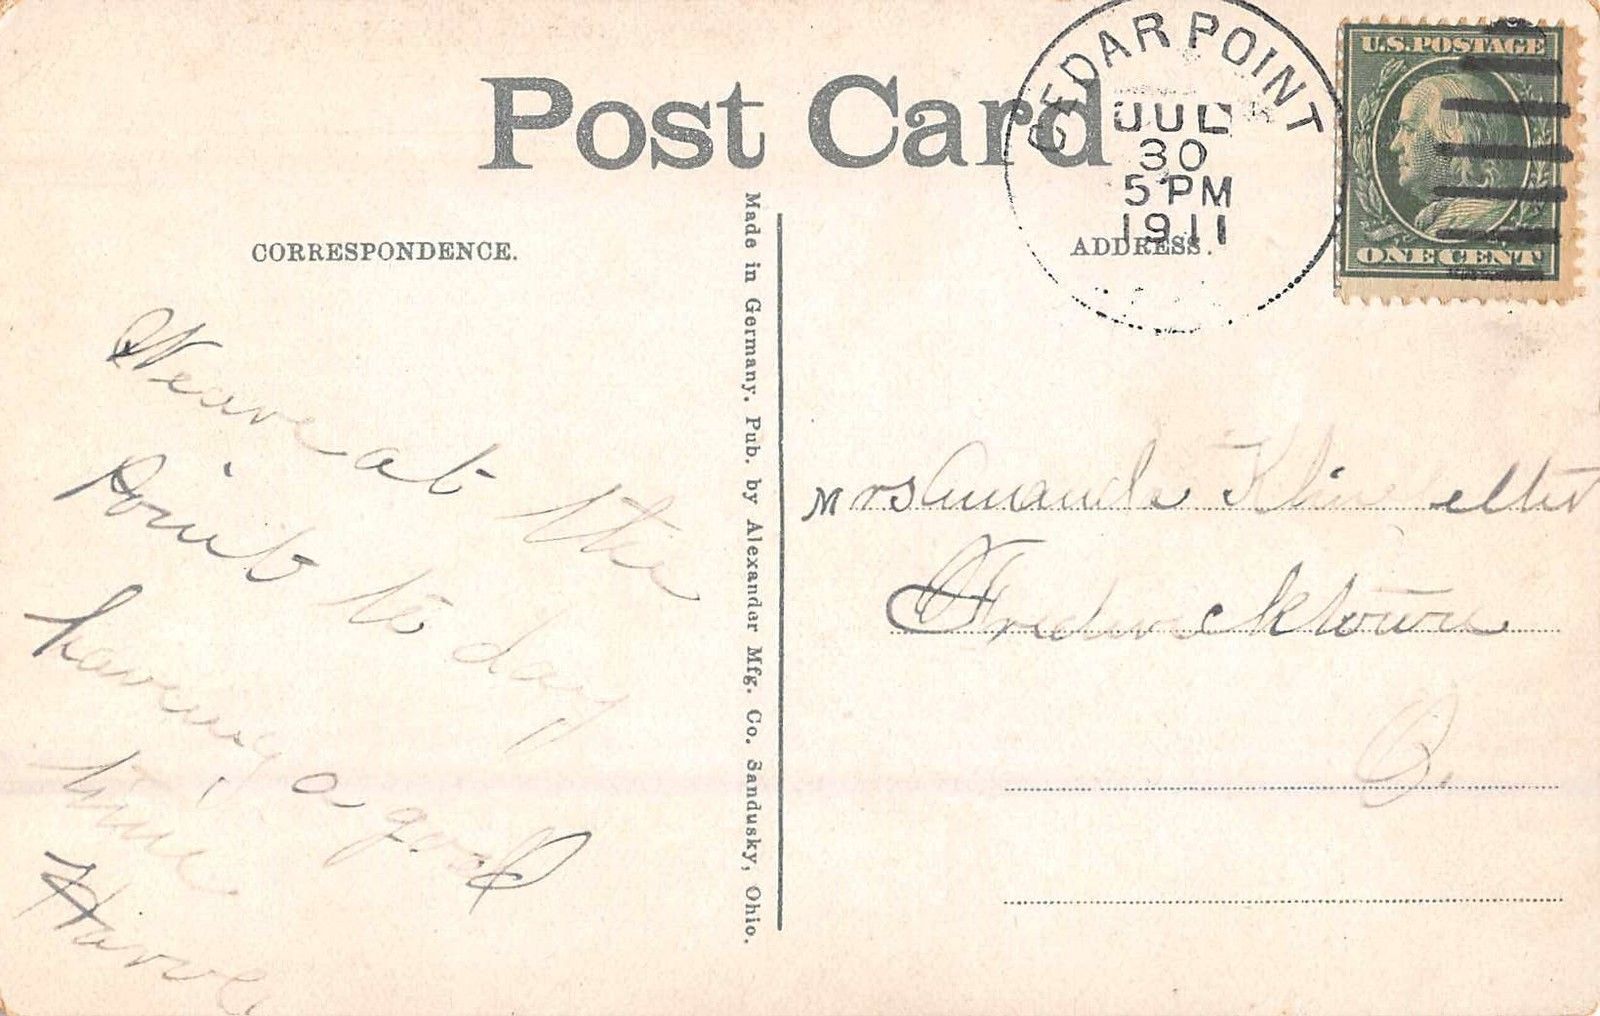 Post Card
CEDAR POINT
JUL
30
5 PM
1911
U.S. POSTAGE
ONE CENT
CORRESPONDENCE.
ADDRESS.
We are at the
Point to day
having a good
time
Made in Germany. Pub. by Alexander Mfg. Co. Sandusky, Ohio.
Mrs Amanda
Fredericktown
O.